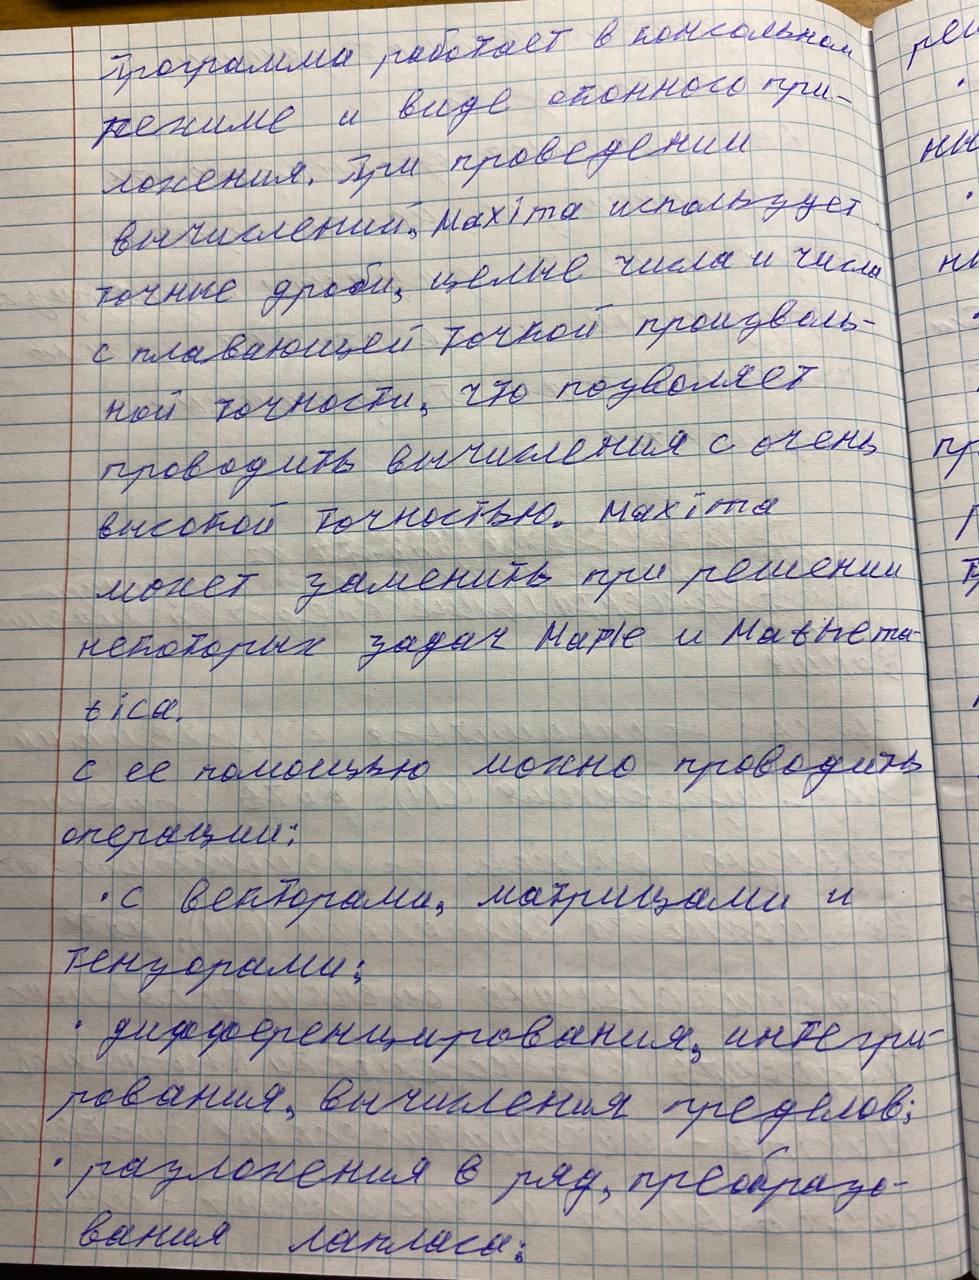 Программа работает в консольном
режиме и виде оконного при-
ложения. При проведении
вычислений, Maxima использует
точные дроби, целые числа и числа
с плавающей точкой произволь-
ной точности, что позволяет
проводить вычисления с очень
высокой точностью. Maxima
может заменить при решении
некоторых задач Maple и Mathema-
tica.
с ее помощью можно проводить
операции:
· с векторами, матрицами и
тензорами;
· дифференцирования, интегри-
рования, вычисления пределов;
· разложения в ряд, преобразо-
вания лапласа;